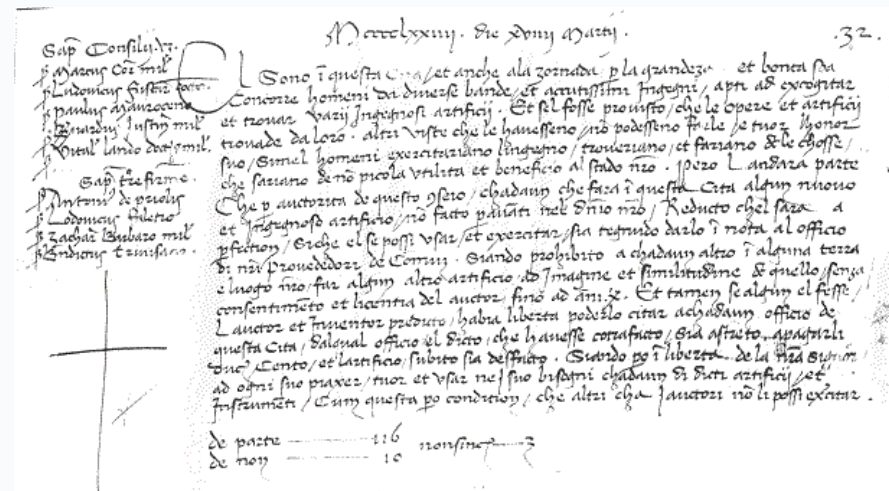 Mcccclxxiiii. die xviiii Martij.
.32.
Sap Consilij. vz.
ꝑ Marcus Cor mil
ꝑ Ludovicus fuscar
ꝑ paulus Mauroceno
ꝑ Bernardus Justin mil
ꝑ Vital lando doct mil
Sap tre firme.
ꝑ Antoni de priolis
ꝑ Lodovicus faletro
ꝑ Zachar Barbaro mil
ꝑ Bndictus trivisano
El Sono ī questa Cita / et anche ala zornada ꝑ la grandeza et bonta soa
Concorre homeni da diverse bande / et accutissimi Ingegni, apti ad excogitar
et trovar varij Ingegnosi artificij. Et sel fosse provisto / che le opere et artificij
trovade da loro. altri viste che le havesseno / nō podesseno farle / e tuor honor
suo / Simel homeni exercitariano lingegno / troveriano / et fariano dele chosse /
che sariano de nō picola utilita et beneficio al stado nro. Pero L andara parte
Che ꝑ auctorita de questo 9seio / chadaun che fara ī questa Cita algun nuovo
et Ingegnoso artificio / nō facto ꝑ avāti nel dnio nro / Reducto chel sara a
ꝑfection / Siche el se possi usar / et exercitar / sia tegnudo darlo ī nota al officio
di nri Provededori de Comun. Siando prohibito a chadaun altro ī alguna terra
e luogo nro / far algun altro artificio / ad Imagine et similitudine de quello / senza
consentimento et licentia del auctor / fino ad ani .x. Et tamen se algun el fesse /
L auctor et Inventor predicto / habia liberta poderlo citar achadaun officio de
questa Cita / dalqual officio el dicto / che havesse cōtrafacto / Sia astreto apagarli
Duc Cento / et lartificio / subito sia desfacto. Siando po ī liberta de la nra Signor
ad ogni suo piaxer / tuor et usar nei suo bisogni chadaun di dicti artificij / et
Instrumenti / Cum questa po condition / che altri cha I auctori nō li possi exercitar.
de parte 116
de non 10
nonsince 3